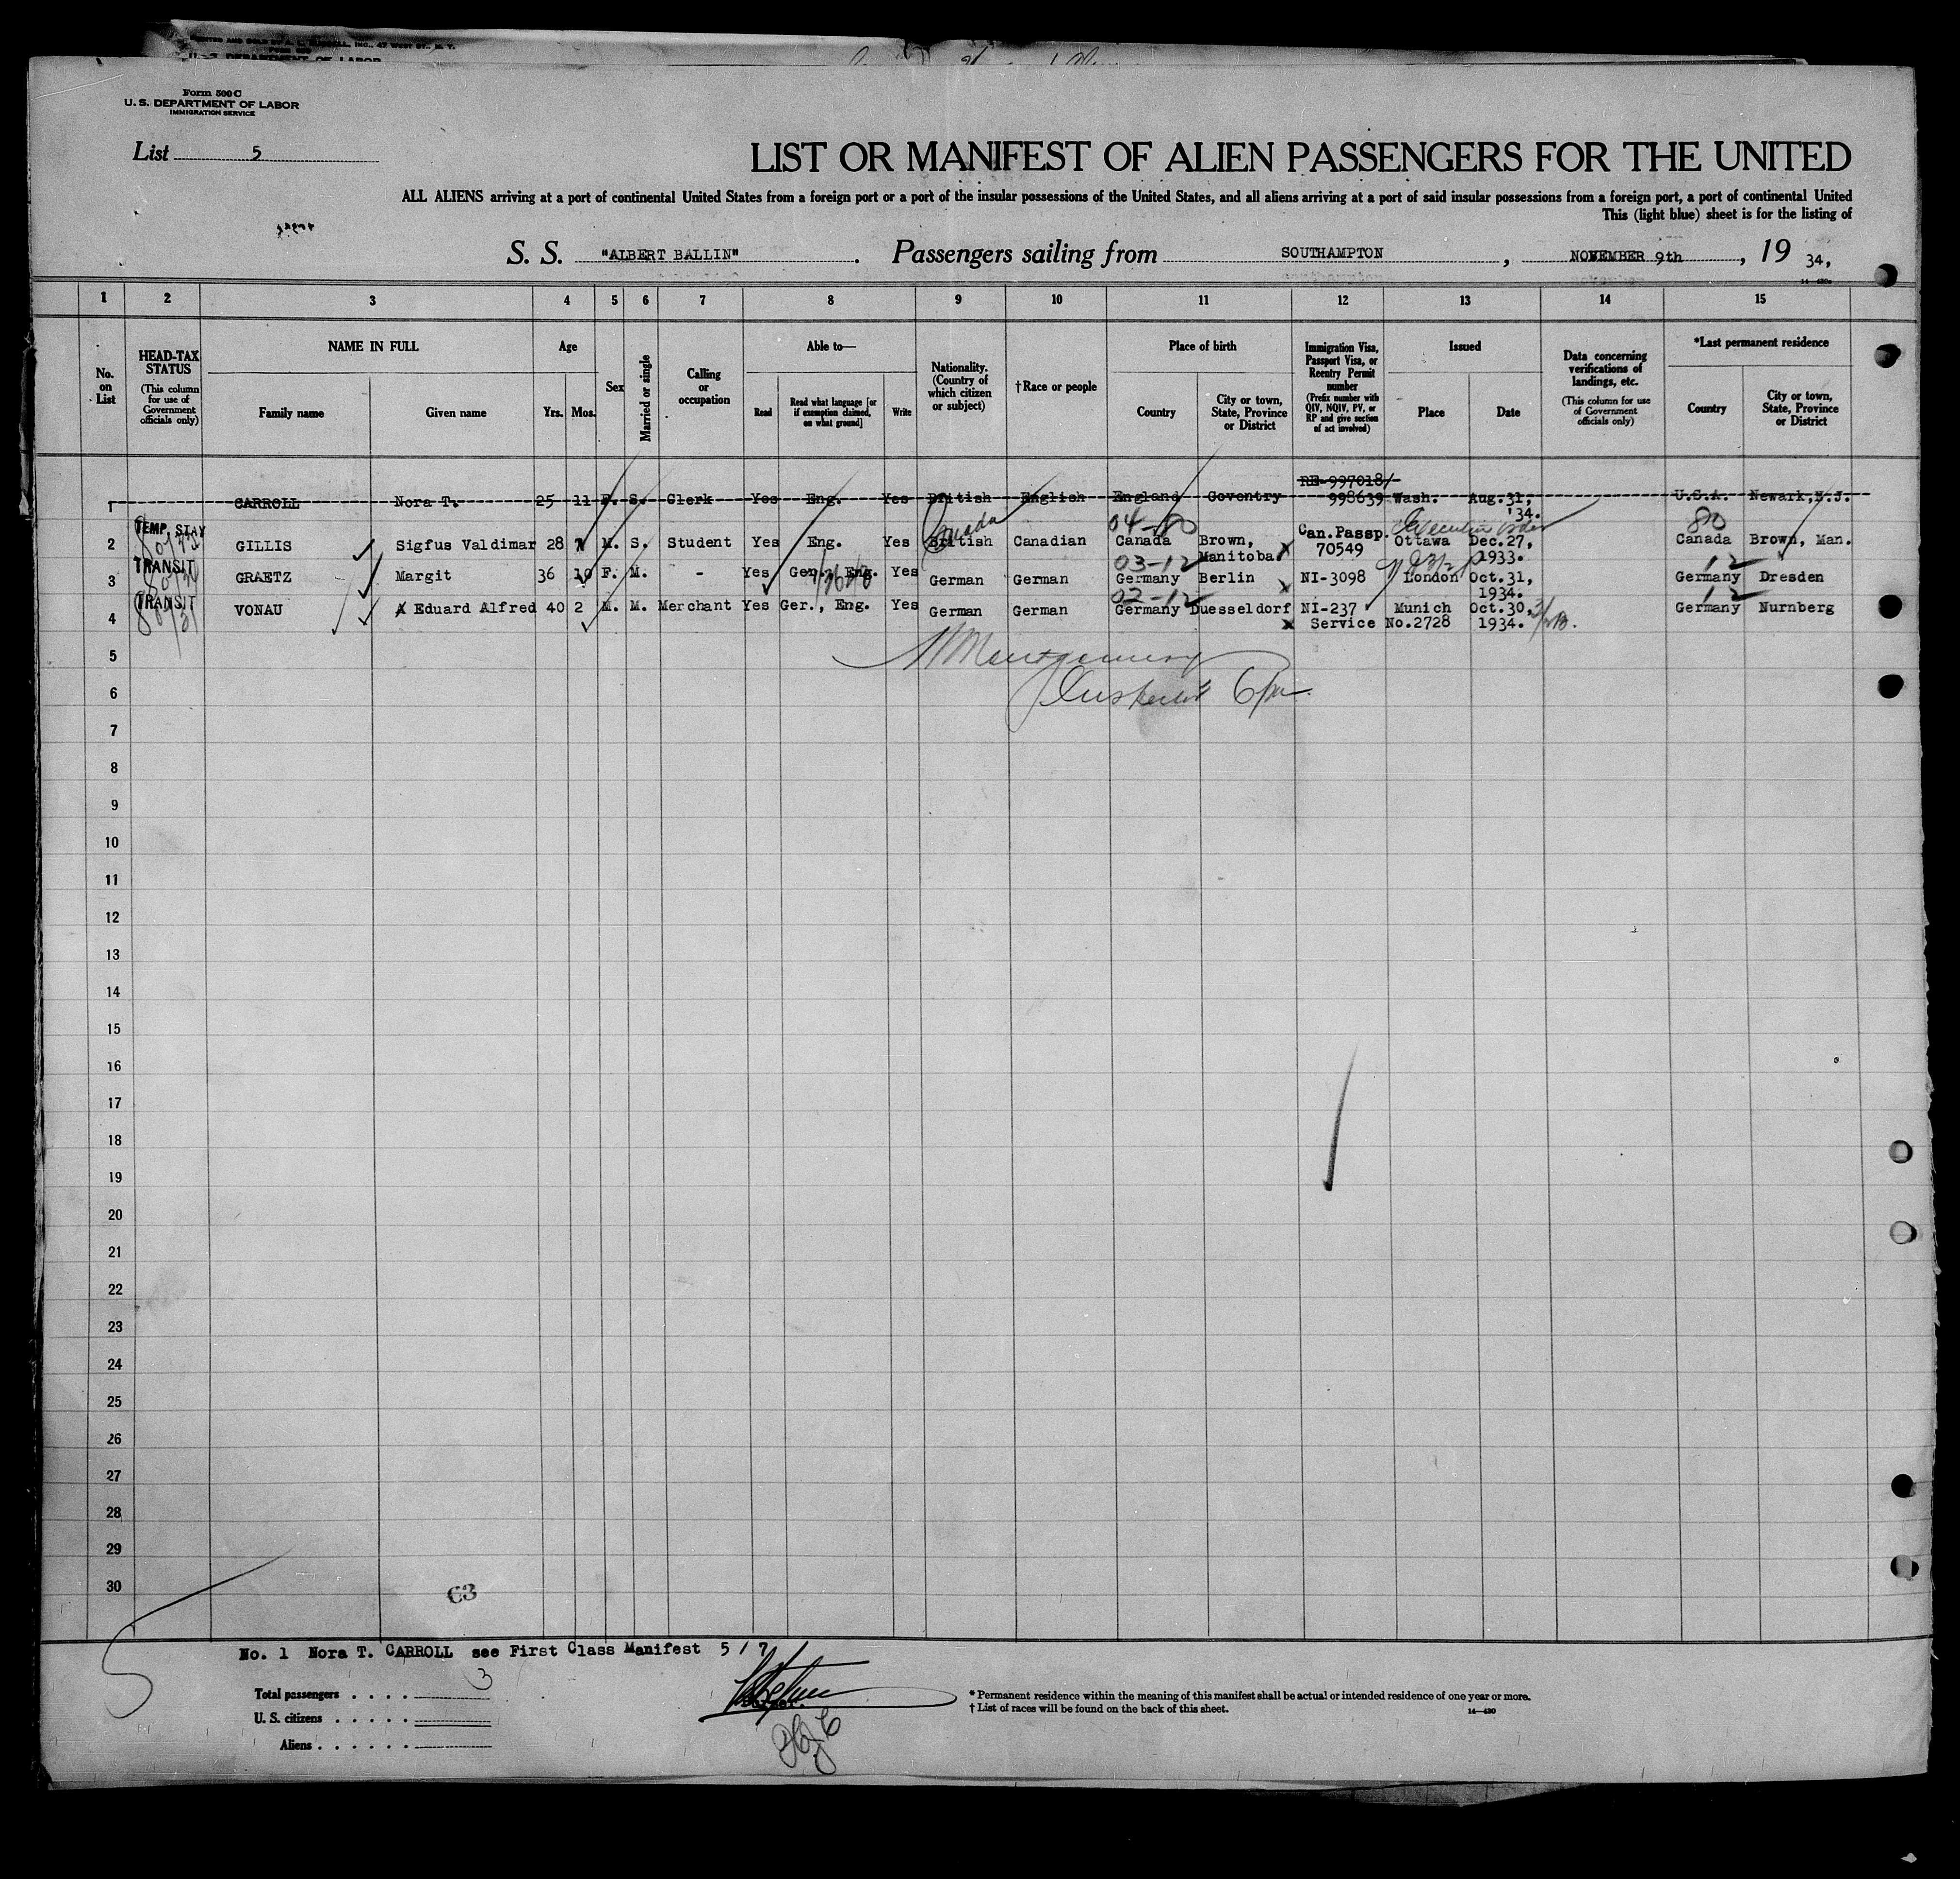 PRINTED AND SOLD BY
INC., 47 WEST ST., N. Y.
U. S. DEPARTMENT OF LABOR
Form 500 C
U. S. DEPARTMENT OF LABOR
IMMIGRATION SERVICE
List 5
LIST OR MANIFEST OF ALIEN PASSENGERS FOR THE UNITED
ALL ALIENS arriving at a port of continental United States from a foreign port or a port of the insular possessions of the United States, and all aliens arriving at a port of said insular possessions from a foreign port, a port of continental United
This (light blue) sheet is for the listing of
S. S. "ALBERT BALLIN" . Passengers sailing from SOUTHAMPTON , NOVEMBER 9th , 19 34,
1 2 3 4 5 6 7 8 9 10 11 12 13 14 15
No. on List
HEAD-TAX STATUS (This column for use of Government officials only)
NAME IN FULL
Family name Given name
Age
Yrs. Mos.
Sex
Married or single
Calling or occupation
Able to—
Read
Read what language [or if exemption claimed, on what ground]
Write
Nationality. (Country of which citizen or subject)
†Race or people
Place of birth
Country
City or town, State, Province or District
Immigration Visa, Passport Visa, or Reentry Permit number (Prefix number with QIV, NQIV, PV, or RP and give section of act involved)
Issued
Place Date
Data concerning verifications of landings, etc. (This column for use of Government officials only)
*Last permanent residence
Country
City or town, State, Province or District
1 CARROLL Nora T. 25 11 F. S. Clerk Yes Eng. Yes British English England Coventry RE-997018/ 998639 Wash. Aug.31, '34. U.S.A. Newark, N.J.
TEMP. STAY
2 GILLIS Sigfus Valdimar 28 7 M. S. Student Yes Eng. Yes British Canada Canadian 04-80 Canada Brown, Manitoba Can.Passp. 70549 Executive order Ottawa Dec.27, 1933. 80 Canada Brown, Man.
TRANSIT
3 GRAETZ Margit 36 10 F. M. - Yes Ger., Eng. Yes German German 03-12 Germany Berlin NI-3098 London Oct.31, 1934. 12 Germany Dresden
TRANSIT
4 VONAU Eduard Alfred 40 2 M. M. Merchant Yes Ger., Eng. Yes German German 02-12 Germany Duesseldorf NI-237 Munich Oct.30, 12 Germany Nurnberg
Service No.2728 1934.
Montgomery
Inspector 6 pm
5
6
7
8
9
10
11
12
13
14
15
16
17
18
19
20
21
22
23
24
25
26
27
28
29
30
C3
No. 1 Nora T. CARROLL see First Class Manifest 5 / 7
5
Total passengers . . . . 3
U. S. citizens . . . . .
Aliens . . . . . .
* Permanent residence within the meaning of this manifest shall be actual or intended residence of one year or more.
† List of races will be found on the back of this sheet.
14—420